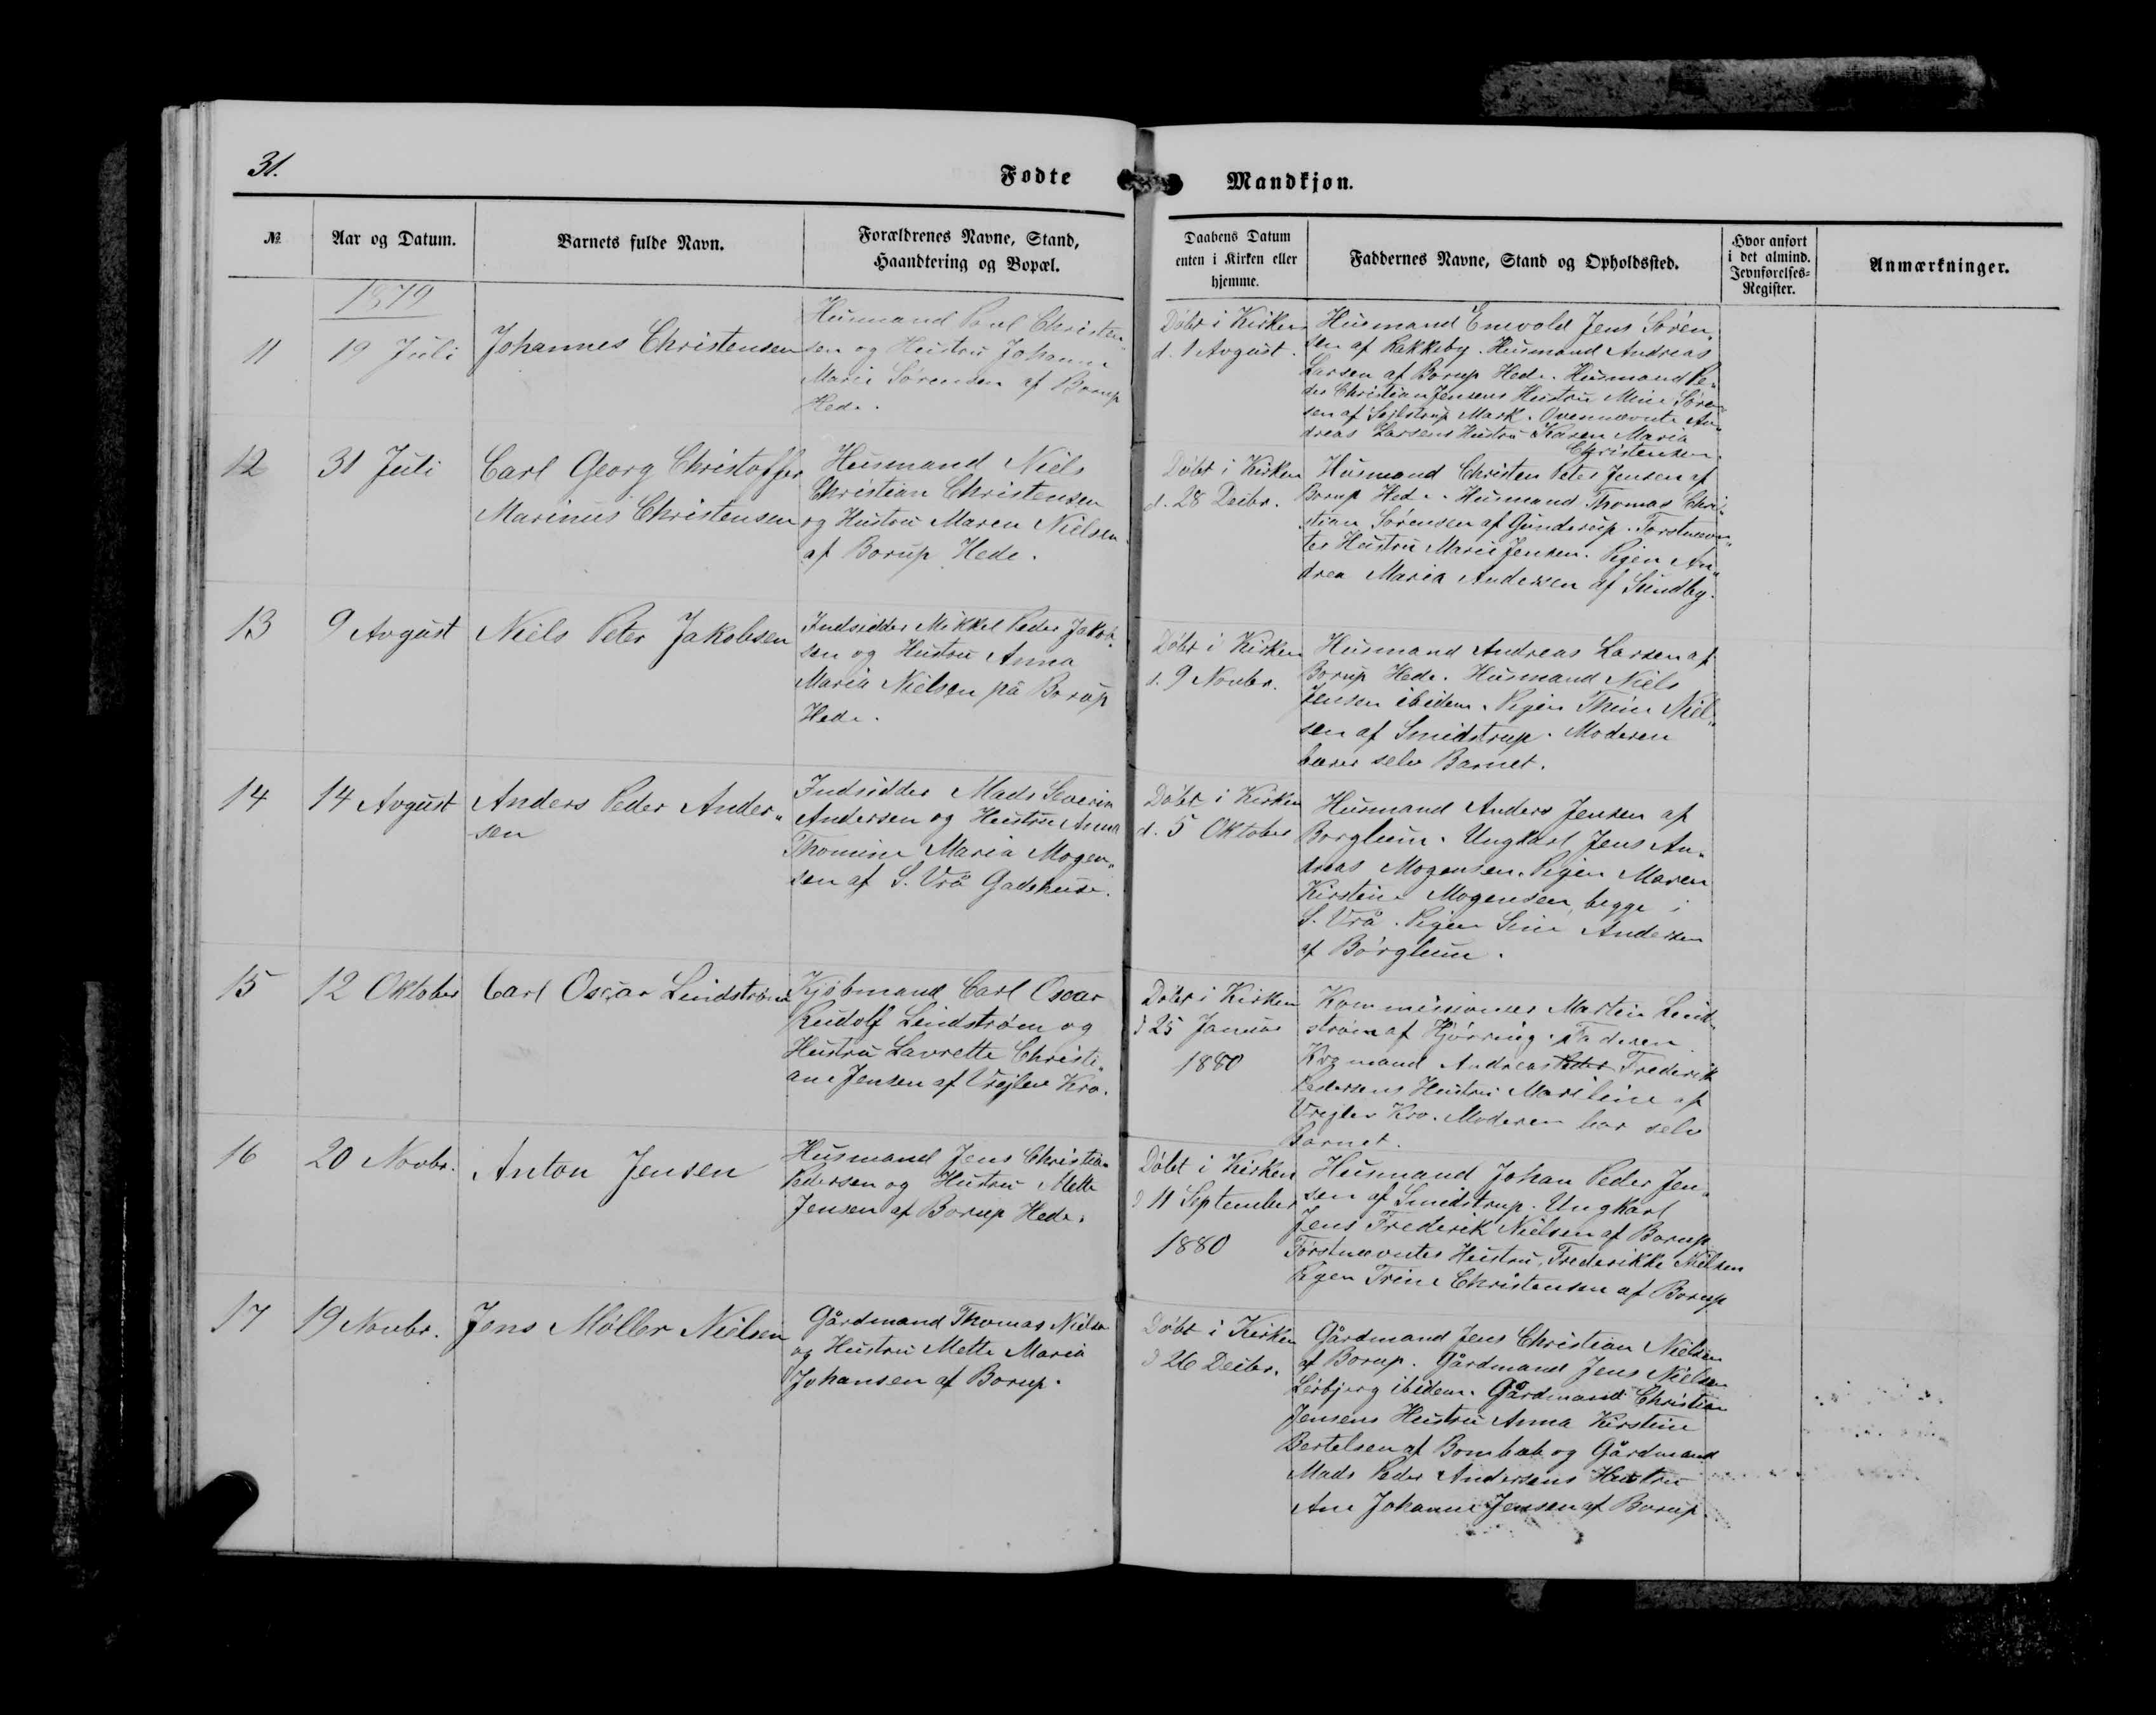 31.
Fødte
Mandkjøn.
№
Aar og Datum.
Barnets fulde Navn.
Forældrenes Navne, Stand,
Haandtering og Bopæl.
Daabens Datum
enten i Kirken eller
hjemme.
Faddernes Navne, Stand og Opholdssted.
Hvor anført
i det almind.
Jevnførelses-
Register.
Anmærkninger.
1879
11
19 Juli
Johannes Christensen
Husmand Poul Christen-
sen og Hustru Johanne
Marie Sørensen af Borup
Hede.
Døbt i Kirken
d. 1 Avgust.
Husmand Enevold Jens Søren-
sen af Rakkeby. Husmand Andreas
Larsen af Borup Hede. Husmand Pe-
der Christian Jensens Hustru Mine Søren-
sen af Sejlstrup Mark. Ovennævnte An-
dreas Larsens Hustru Karen Maria
Christensen.
12
31 Juli
Carl Georg Christoffer
Marinus Christensen
Husmand Niels
Christian Christensen
og Hustru Maren Nielsen
af Borup Hede.
Døbt i Kirken
d. 28 Decbr.
Husmand Christen Peter Jensen af
Borup Hede. Husmand Thomas Chri-
stian Sørensen af Gunderup. Førstnævn-
tes Hustru Marie Jensen. Pigen An-
drea Maria Andersen af Sundby.
13
9 Avgust
Niels Peter Jakobsen
Indsidder Mikkel Peder Jakob-
sen og Hustru Anna
Maria Nielsen på Borup
Hede.
Døbt i Kirken
d. 9 Novbr.
Husmand Andreas Larsen af
Borup Hede. Husmand Niels
Jensen ibidem. Pigen Thine Niel-
sen af Smidstrup. Moderen
bærer selv Barnet.
14
14 Avgust
Anders Peder Ander-
sen
Indsidder Mads Severin
Andersen og Hustru Anna
Thomine Maria Mogen-
sen af S. Vrå Gadehuse.
Døbt i Kirken
d. 5 Oktober
Husmand Anders Jensen af
Børglum. Ungkarl Jens An-
dreas Mogensen. Pigen Maren
Kirstine Mogensen, begge i
S. Vrå. Pigen Sine Andersen
af Børglum.
15
12 Oktober
Carl Oscar Lindstrøm
Kjøbmand Carl Oscar
Rudolf Lindstrøm og
Hustru Lavrette Christi-
ane Jensen af Vrejlev Kro.
Døbt i Kirken
d 25 Januar
1880
Kommissionær Martin Lind-
strøm af Hjørring. Faderen
mand Andreas Peder Frederik
Pedersens Hustru af
Vrejlev Kro. Moderen bar selv
Barnet.
16
20 Novbr.
Anton Jensen
Husmand Jens Christian
Pedersen og Hustru Mette
Jensen af Borup Hede.
Døbt i Kirken
d 11 September
1880
Husmand Johan Peder Jen-
sen af Smidstrup. Ungkarl
Jens Frederik Nielsen af Borup
Førstnævntes Hustru, Frederikke Nielsen
Pigen Trine Christensen af Borup
17
19 Novbr.
Jens Møller Nielsen
Gårdmand Thomas Nielsen
og Hustru Mette Maria
Johansen af Borup.
Døbt i Kirken
d 26 Decbr.
Gårdmand Jens Christian Nielsen
af Borup. Gårdmand Jens Nielsen
Lerbjerg ibidem. Gårdmand Christian
Jensens Hustru Anna Kirstine
Bertelsen af og Gårdmand
Mads Peder Andersens Hustru
Ane Johanne Jensen af Borup.